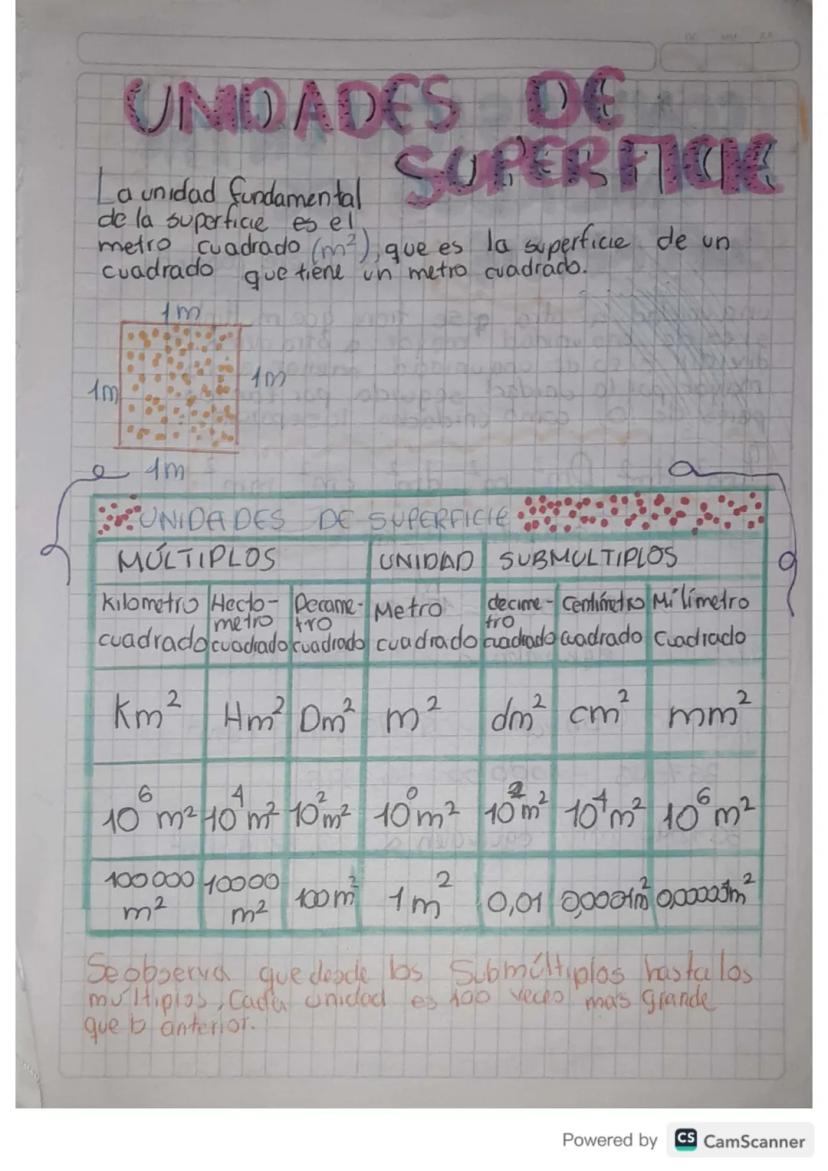 UNIDADES DE
SUPERFICIE
La unidad fundamental
de la superficie es el
metro cuadrado (m²), que es la superficie de un
cuadrado que tiene un metro cuadrado.
1m
1m 1m
1m
UNIDADES DE SUPERFICIE
MÚLTIPLOS UNIDAD SUBMULTIPLOS
Kilometro cuadrado Hecto-metro cuadrado Decame-tro cuadrado Metro cuadrado decime-tro cuadrado Centímetro cuadrado Milímetro Cuadrado
Km² Hm² Dm² m² dm² cm² mm²
10⁶ m² 10⁴ m² 10² m² 10⁰ m² 10² m² 10⁴ m² 10⁶ m²
100000 m² 10000 m² 100 m² 1 m² 0,01 0,0001m²
Se observa que desde los Submúltiplos hasta los
multiplos, Cada unidad es 100 veces mas grande
que la anterior.
Powered by CS CamScanner